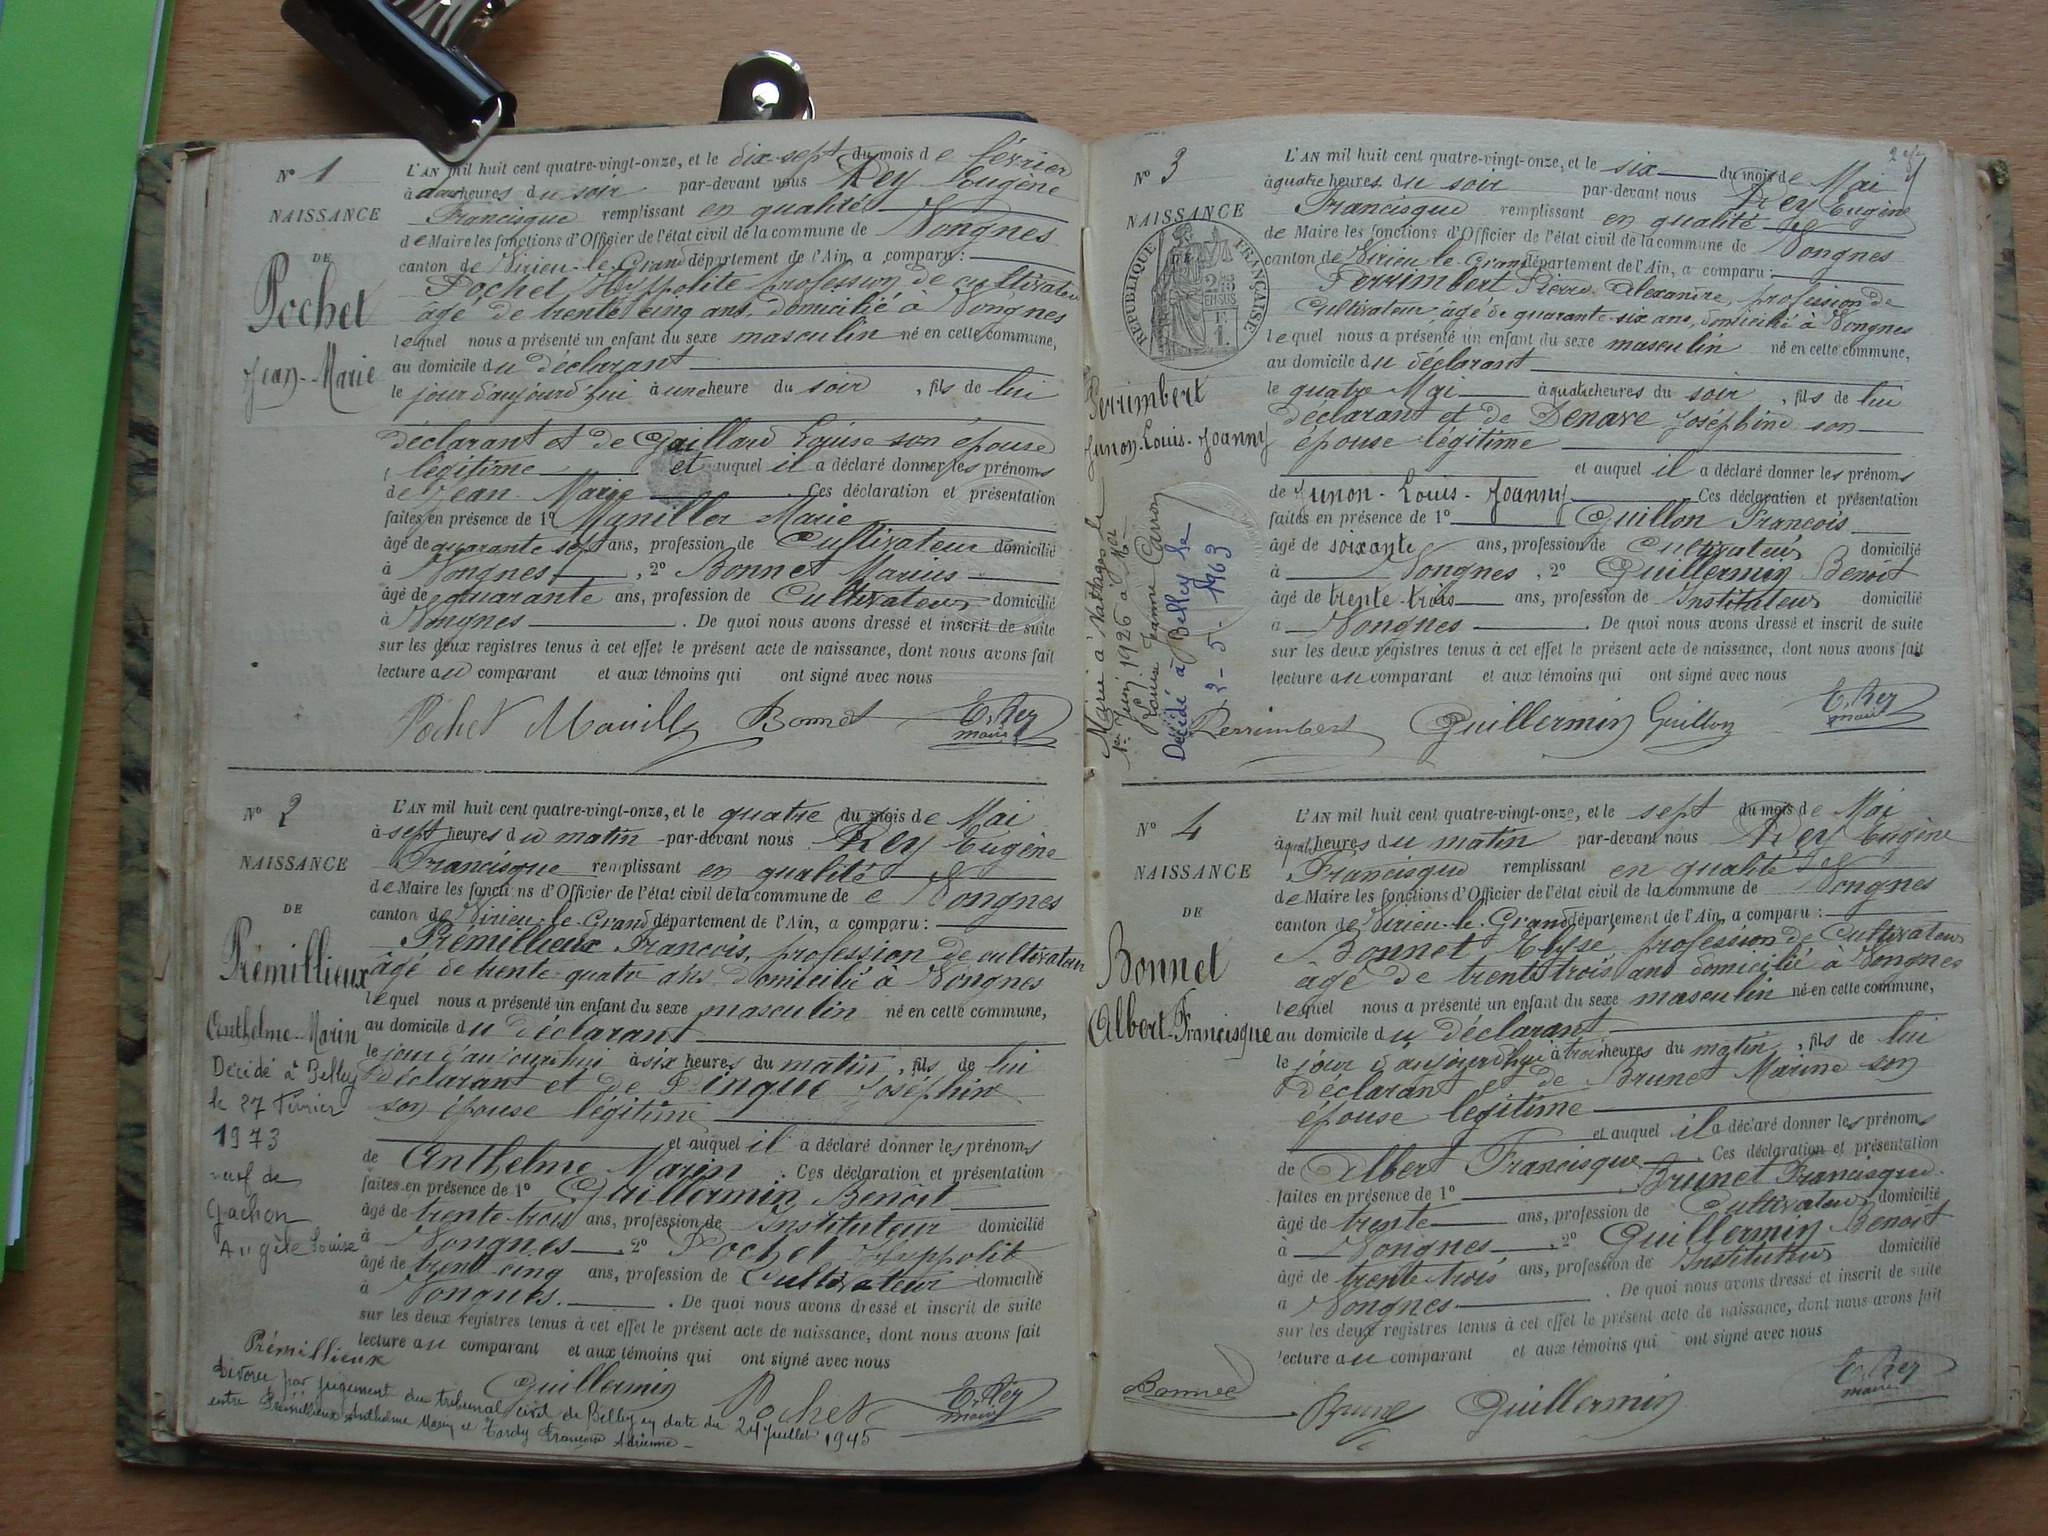 N° 1
NAISSANCE
DE
Pochet
Jean-Marie
L'AN mil huit cent quatre-vingt-onze, et le dix-sept du mois de février
à heures du soir par-devant nous Rey Eugène
Francisque remplissant en qualité
de Maire les fonctions d'Officier de l'état civil de la commune de Vongnes
canton de Virieu-le-Grand département de l'Ain, a comparu :
Pochet Hyppolite profession de cultivateur
âgé de trente cinq ans, domicilié à Vongnes
lequel nous a présenté un enfant du sexe masculin né en cette commune,
au domicile du déclarant
le jour d'aujourd'hui à une heure du soir, fils de lui
déclarant et de Gaillard Louise son épouse
légitime et auquel il a déclaré donner les prénoms
de Jean Marie Ces déclaration et présentation
faites en présence de 1° Marie
âgé de quarante sept ans, profession de Cultivateur domicilié
à Vongnes, 2° Bonnet Marius
âgé de quarante ans, profession de Cultivateur domicilié
à Vongnes. De quoi nous avons dressé et inscrit de suite
sur les deux registres tenus à cet effet le présent acte de naissance, dont nous avons fait
lecture au comparant et aux témoins qui ont signé avec nous
Pochet Bonnet E. Rey
maire
N° 2
NAISSANCE
DE
Prémillieux
Anthelme-Marin
Décidé à Belley
le 27 Février
1973
veuf de
Gachon
Angèle Louise
L'AN mil huit cent quatre-vingt-onze, et le quatre du mois de Mai
à sept heures du matin par-devant nous Rey Eugène
Francisque remplissant en qualité
de Maire les fonctions d'Officier de l'état civil de la commune de e Vongnes
canton de Virieu-le-Grand département de l'Ain, a comparu :
Prémillieux François, profession de cultivateur
âgé de trente-quatre ans domicilié à Vongnes
lequel nous a présenté un enfant du sexe masculin né en cette commune,
au domicile du déclarant
le jour d'aujourdhui à six heures du matin, fils de lui
déclarant et de Pingue Joséphine
son épouse légitime
et auquel il a déclaré donner les prénoms
de Anthelme Marin. Ces déclaration et présentation
faites en présence de 1° Guillermin Benoît
âgé de trente-trois ans, profession de Instituteur domicilié
à Vongnes, 2° Pochet Hyppolite
âgé de trente cinq ans, profession de Cultivateur domicilié
à Vongnes. De quoi nous avons dressé et inscrit de suite
sur les deux registres tenus à cet effet le présent acte de naissance, dont nous avons fait
lecture au comparant et aux témoins qui ont signé avec nous
Prémillieux Guillermin Pochet E. Rey
maire
Divorce par jugement du tribunal civil de Belley en date du 24 juillet 1945
entre Prémillieux Anthelme Marin et Tardy Françoise Adrienne
N° 3
NAISSANCE
DE
RÉPUBLIQUE FRANÇAISE
Perrimbert
Junon-Louis-Joanny
Marié à Nattages le
1er Juin 1926 à Mlle
Louise Jeanne Carron
Décédé à Belley le
2-5-1963
L'AN mil huit cent quatre-vingt-onze, et le six du mois de Mai
à quatre heures du soir par-devant nous Rey Eugène
Francisque remplissant en qualité
de Maire les fonctions d'Officier de l'état civil de la commune de Vongnes
canton de Virieu-le-Grand département de l'Ain, a comparu :
Perrimbert Pierre Alexandre, profession de
Cultivateur âgé de quarante-six ans, domicilié à Vongnes
lequel nous a présenté un enfant du sexe masculin né en cette commune,
au domicile du déclarant
le quatre Mai à quatre heures du soir, fils de lui
déclarant et de Denave Joséphine son
épouse légitime
et auquel il a déclaré donner les prénoms
de Junon-Louis-Joanny Ces déclaration et présentation
faites en présence de 1° Guillon François
âgé de soixante ans, profession de Cultivateur domicilié
à Vongnes, 2° Guillermin Benoît
âgé de trente-trois ans, profession de Instituteur domicilié
à Vongnes. De quoi nous avons dressé et inscrit de suite
sur les deux registres tenus à cet effet le présent acte de naissance, dont nous avons fait
lecture au comparant et aux témoins qui ont signé avec nous
Perrimbert Guillermin Guillon E. Rey
maire
N° 4
NAISSANCE
DE
Bonnet
Albert-Francisque
L'AN mil huit cent quatre-vingt-onze, et le sept du mois de Mai
à heures du matin par-devant nous Rey Eugène
Francisque remplissant en qualité
de Maire les fonctions d'Officier de l'état civil de la commune de Vongnes
canton de Virieu-le-Grand département de l'Ain, a comparu :
Bonnet Elysé, profession de Cultivateur
âgé de trente trois ans domicilié à Vongnes
lequel nous a présenté un enfant du sexe masculin né en cette commune,
au domicile du déclarant
le jour d'aujourdhui à trois heures du matin, fils de lui
déclarant et de Brunet Marine son
épouse légitime
et auquel il a déclaré donner les prénoms
de Albert Francisque. Ces déclaration et présentation
faites en présence de 1° Brunet Francisque
âgé de trente ans, profession de Cultivateur domicilié
à Vongnes, 2° Guillermin Benoît
âgé de trente trois ans, profession de Instituteur domicilié
à Vongnes. De quoi nous avons dressé et inscrit de suite
sur les deux registres tenus à cet effet le présent acte de naissance, dont nous avons fait
lecture au comparant et aux témoins qui ont signé avec nous
Bonnet Brunet Guillermin E. Rey
maire